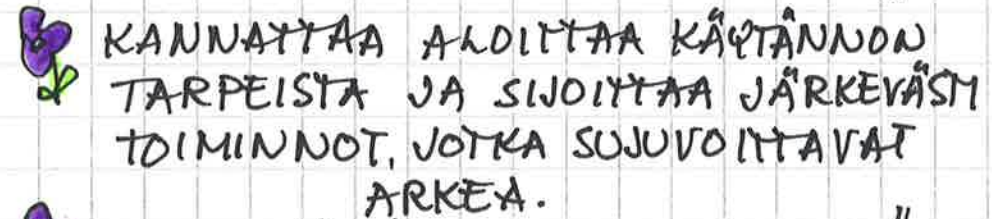 KANNATTAA ALOITTAA KÄYTÄNNÖN
TARPEISTA JA SIJOITTAA JÄRKEVÄSTI
TOIMINNOT, JOTKA SUJUVOITTAVAT
ARKEA.